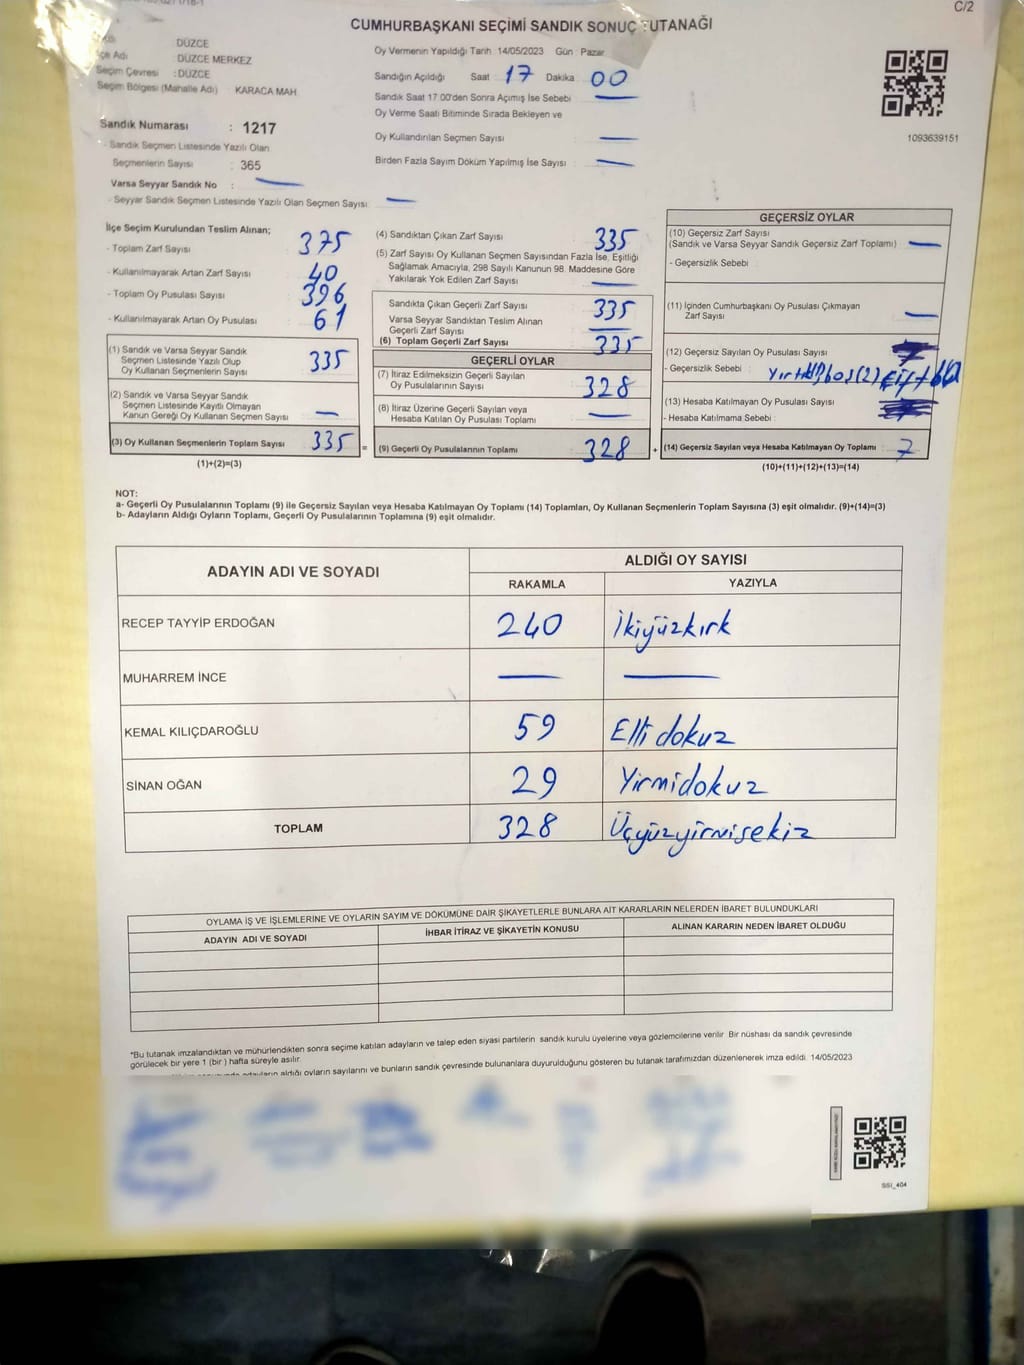 C/2
CUMHURBAŞKANI SEÇİMİ SANDIK SONUÇ TUTANAĞI
DÜZCE
Adı : DÜZCE MERKEZ
Seçim Çevresi : DÜZCE
Seçim Bölgesi (Mahalle Adı) KARACA MAH
Sandık Numarası : 1217
- Sandık Seçmen Listesinde Yazılı Olan
Seçmenlerin Sayısı : 365
Varsa Seyyar Sandık No : —
- Seyyar Sandık Seçmen Listesinde Yazılı Olan Seçmen Sayısı : —
Oy Vermenin Yapıldığı Tarih 14/05/2023 Gün : Pazar
Sandığın Açıldığı Saat : 17 Dakika : 00
Sandık Saat 17:00'den Sonra Açımış İse Sebebi : —
Oy Verme Saati Bitiminde Sırada Bekleyen ve
Oy Kullandırılan Seçmen Sayısı : —
Birden Fazla Sayım Döküm Yapılmış İse Sayısı : —
1093639151
İlçe Seçim Kurulundan Teslim Alınan;
- Toplam Zarf Sayısı : 375
- Kullanılmayarak Artan Zarf Sayısı : 40
- Toplam Oy Pusulası Sayısı : 396
- Kullanılmayarak Artan Oy Pusulası : 61
(1) Sandık ve Varsa Seyyar Sandık
Seçmen Listesinde Yazılı Olup
Oy Kullanan Seçmenlerin Sayısı : 335
(2) Sandık ve Varsa Seyyar Sandık
Seçmen Listesinde Kayıtlı Olmayan
Kanun Gereği Oy Kullanan Seçmen Sayısı : —
(3) Oy Kullanan Seçmenlerin Toplam Sayısı : 335 =
(1)+(2)=(3)
(4) Sandıktan Çıkan Zarf Sayısı : 335
(5) Zarf Sayısı Oy Kullanan Seçmen Sayısından Fazla İse, Eşitliği
Sağlamak Amacıyla, 298 Sayılı Kanunun 98. Maddesine Göre
Yakılarak Yok Edilen Zarf Sayısı : —
Sandıkta Çıkan Geçerli Zarf Sayısı : 335
Varsa Seyyar Sandıktan Teslim Alınan
Geçerli Zarf Sayısı : —
(6) Toplam Geçerli Zarf Sayısı : 335
GEÇERLİ OYLAR
(7) İtiraz Edilmeksizin Geçerli Sayılan
Oy Pusulalarının Sayısı : 328
(8) İtiraz Üzerine Geçerli Sayılan veya
Hesaba Katılan Oy Pusulaları Toplamı : —
(9) Geçerli Oy Pusulalarının Toplamı : 328 +
GEÇERSİZ OYLAR
(10) Geçersiz Zarf Sayısı
(Sandık ve Varsa Seyyar Sandık Geçersiz Zarf Toplamı) : —
- Geçersizlik Sebebi :
(11) İçinden Cumhurbaşkanı Oy Pusulası Çıkmayan
Zarf Sayısı : —
(12) Geçersiz Sayılan Oy Pusulası Sayısı : 7
- Geçersizlik Sebebi : (2) çift
(13) Hesaba Katılmayan Oy Pusulası Sayısı :
- Hesaba Katılmama Sebebi :
(14) Geçersiz Sayılan veya Hesaba Katılmayan Oy Toplamı : 7
(10)+(11)+(12)+(13)=(14)
NOT:
a- Geçerli Oy Pusulalarının Toplamı (9) ile Geçersiz Sayılan veya Hesaba Katılmayan Oy Toplamı (14) Toplamları, Oy Kullanan Seçmenlerin Toplam Sayısına (3) eşit olmalıdır. (9)+(14)=(3)
b- Adayların Aldığı Oyların Toplamı, Geçerli Oy Pusulalarının Toplamına (9) eşit olmalıdır.
ADAYIN ADI VE SOYADI ALDIĞI OY SAYISI
RAKAMLA YAZIYLA
RECEP TAYYİP ERDOĞAN 240 İkiyüzkırk
MUHARREM İNCE — —
KEMAL KILIÇDAROĞLU 59 Elli dokuz
SİNAN OĞAN 29 Yirmidokuz
TOPLAM 328 Üçyüzyirmisekiz
OYLAMA İŞ VE İŞLEMLERİNE VE OYLARIN SAYIM VE DÖKÜMÜNE DAİR ŞİKAYETLERLE BUNLARA AİT KARARLARIN NELERDEN İBARET BULUNDUKLARI
ADAYIN ADI VE SOYADI İHBAR İTİRAZ VE ŞİKAYETİN KONUSU ALINAN KARARIN NEDEN İBARET OLDUĞU
*Bu tutanak imzalandıktan ve mühürlendikten sonra seçime katılan adayların ve talep eden siyasi partilerin sandık kurulu üyelerine veya gözlemcilerine verilir. Bir nüshası da sandık çevresinde
görülecek bir yere 1 (bir) hafta süreyle asılır.
adayların aldığı oyların sayılarını ve bunların sandık çevresinde bulunanlara duyurulduğunu gösteren bu tutanak tarafımızdan düzenlenerek imza edildi. 14/05/2023
SSI_404